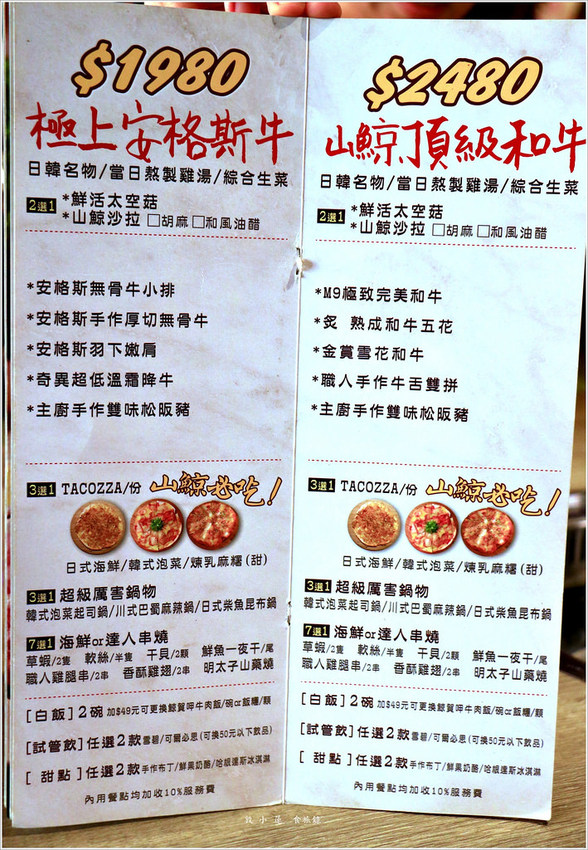 $1980
極上安格斯牛
日韓名物/當日熬製雞湯/綜合生菜
2選1 *鮮活太空菇
*山鯨沙拉 □胡麻 □和風油醋
*安格斯無骨牛小排
*安格斯手作厚切無骨牛
*安格斯羽下嫩肩
*奇異超低溫霜降牛
*主廚手作雙味松阪豬
3選1 TACOZZA/份 山鯨必吃!
日式海鮮/韓式泡菜/煉乳麻糬(甜)
3選1 超級厲害鍋物
韓式泡菜起司鍋/川式巴蜀麻辣鍋/日式柴魚昆布鍋
7選1 海鮮or達人串燒
草蝦/2隻 軟絲/半隻 干貝/2顆 鮮魚一夜干/尾
職人雞腿串/2串 香酥雞翅/2串 明太子山藥燒
[白飯]2碗 加$49元可更換鯨賀呷牛肉飯/碗or飯糰/顆
[試管飲]任選2款 雪碧/可爾必思(可換50元以下飲品)
[甜點]任選2款 手作布丁/鮮果奶酪/哈根達斯冰淇淋
內用餐點均加收10%服務費
$2480
山鯨頂級和牛
日韓名物/當日熬製雞湯/綜合生菜
2選1 *鮮活太空菇
*山鯨沙拉 □胡麻 □和風油醋
*M9極致完美和牛
*炙 熟成和牛五花
*金賞雪花和牛
*職人手作牛舌雙拼
*主廚手作雙味松阪豬
3選1 TACOZZA/份 山鯨必吃!
日式海鮮/韓式泡菜/煉乳麻糬(甜)
3選1 超級厲害鍋物
韓式泡菜起司鍋/川式巴蜀麻辣鍋/日式柴魚昆布鍋
7選1 海鮮or達人串燒
草蝦/2隻 軟絲/半隻 干貝/2顆 鮮魚一夜干/尾
職人雞腿串/2串 香酥雞翅/2串 明太子山藥燒
[白飯]2碗 加$49元可更換鯨賀呷牛肉飯/碗or飯糰/顆
[試管飲]任選2款 雪碧/可爾必思(可換50元以下飲品)
[甜點]任選2款 手作布丁/鮮果奶酪/哈根達斯冰淇淋
內用餐點均加收10%服務費